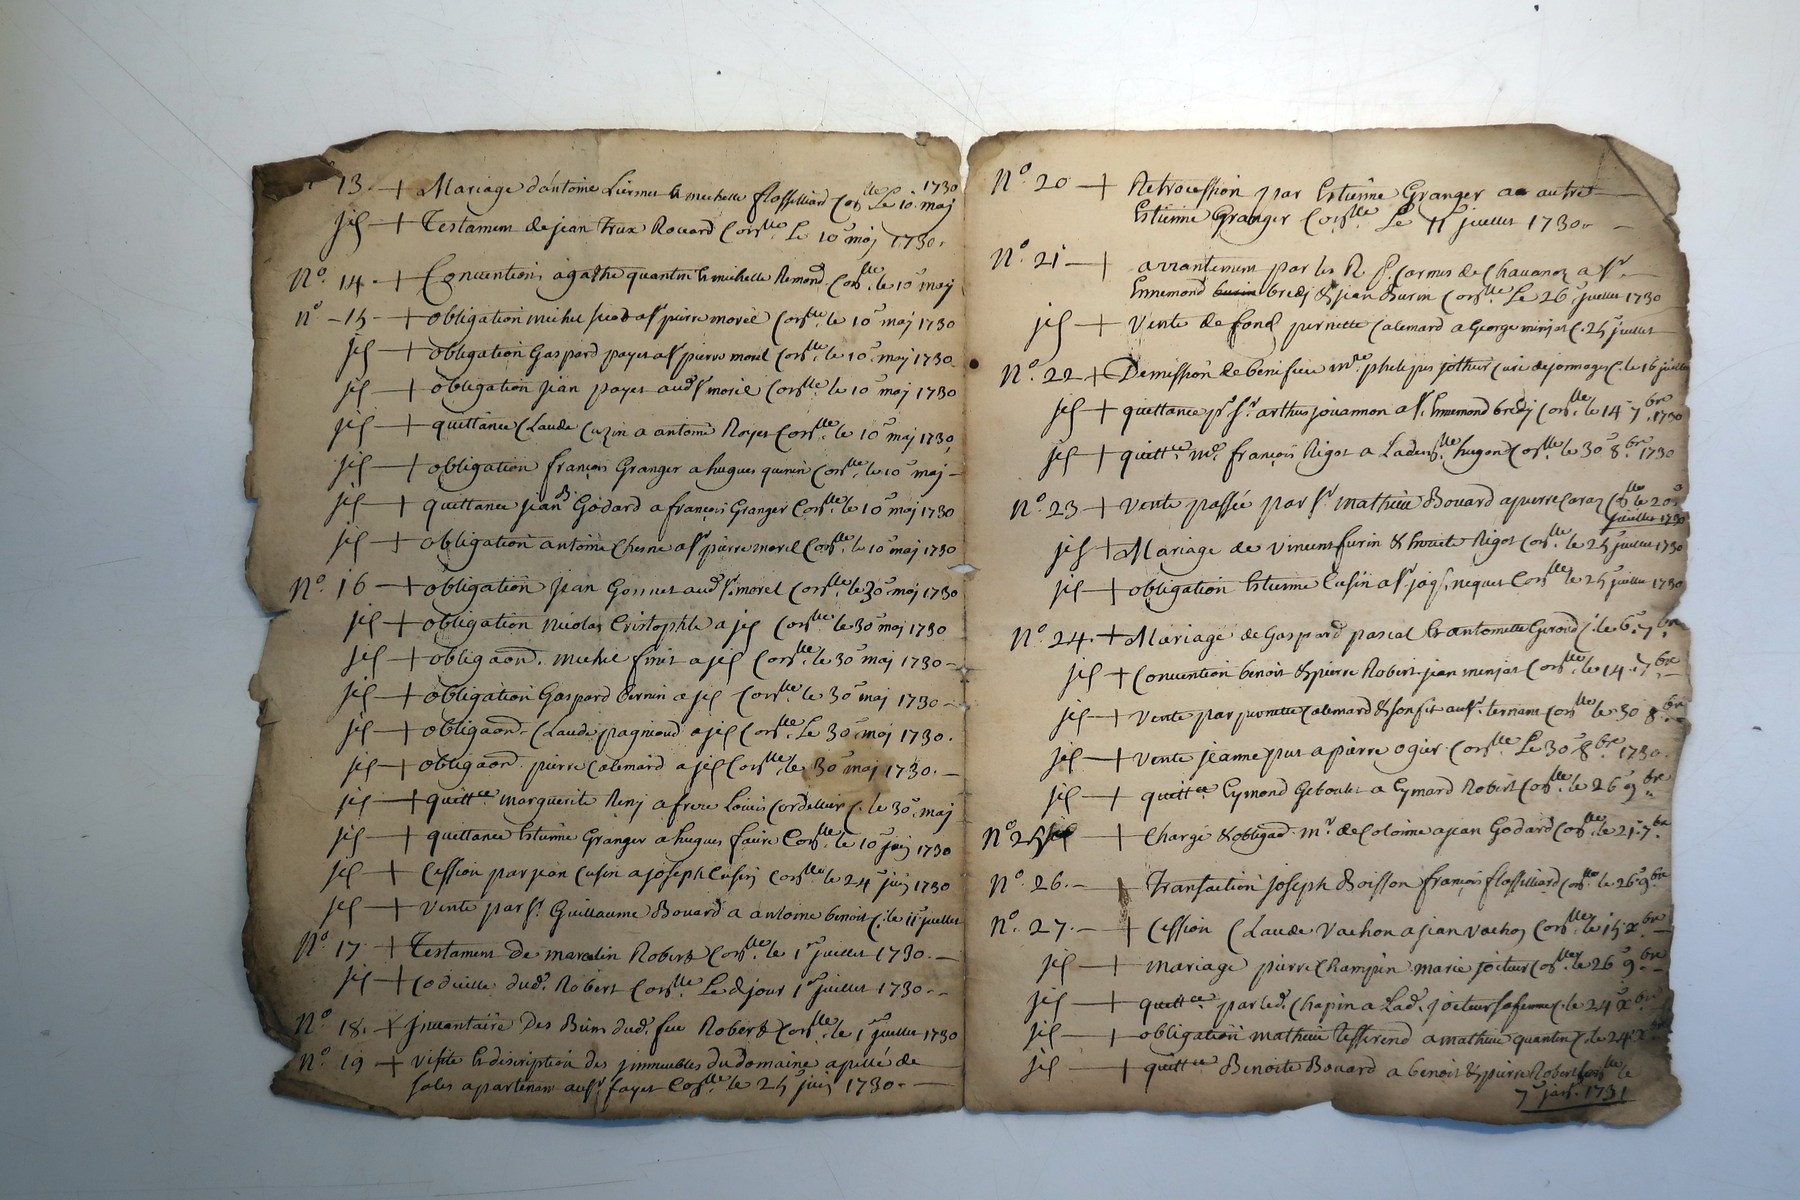 13. + Mariage d'antoine & michelle flossilliard Con^lle Le 10. maj 1730
jel + Testament de jean Rouard Con^lle Le 10 maj 1730.
N° 14. + Convention agathe quantin & michelle Remond Con^lle le 10 maj
N° 15 + obligation michel a s^r pierre morel Con^lle le 10 maj 1730
jel + obligation Gaspard payet a s^r pierre morel Con^lle le 10 maj 1730
jel + obligation jean payet aud^t s^r morel Con^lle le 10 maj 1730
jel + quittance Claude Cuzin a antoine Royer Con^lle le 10 maj 1730
jel + obligation françois Granger a hugues quinin Con^lle le 10 maj
jel + quittance jean B Godard a françois Granger Con^lle le 10 maj 1730
jel + obligation antoine Chesne a s^r pierre morel Con^lle le 10 maj 1730
N° 16 + obligation jean Gonnet aud^t s^r morel Con^lle le 30 maj 1730
jel + obligation Nicolas Cristophle a jel Con^lle le 30 maj 1730
jel + obligaõn. michel finit a jel Con^lle le 30 maj 1730
jel + obligation Gaspard Vernin a jel Con^lle le 30 maj 1730
jel + obligaõn. Claude pagnioud a jel Con^lle Le 30 maj 1730.
jel + obligaõn. pierre Calemard a jel Con^lle le 30 maj 1730.
jel + quitt^ce marguerite Remj a frere Louis Cordellier C. le 30. maj
jel + quittance Estienne Granger a hugues faure Con^lle le 10 juin 1730
jel + Cession par jean Cusin a joseph Cusin Con^lle le 24 juin 1730
jel + Vente par s^r Guillaume Bouard a antoine benoit C. le 11 juillet
N° 17 + Testament de marcelin Robert Con^lle le 1^r juillet 1730.
jel + Codicille dud^t Robert Con^lle Le d jour 1^r juillet 1730.
N° 18. + Jnvantaire Des Biens dud^t feu Robert Con^lle le 1^r juillet 1730
N° 19 + visite & discription des jmmeubles du domaine apellé de
Sales apartenant au s^r fayet Con^lle le 25 juin 1730.
N° 20 + Retrocession par Estienne Granger a autre
Estienne Granger Con^lle Le 11 juillet 1730.
N° 21 + arrantement par les R. P. Carmes de Chavanoz a s^r
Ennemond bredj & jean Burin Con^lle Le 26 juillet 1730
jel + Vente de fond pernette Calemard a George minjat C. 25 juillet
N° 22 + Demission de benifice m^re philipes jothier Curé de jonnages C. le 16 juillet
jel + quittance p^r s^r arthus jouannon a s^r Ennemond bredj Con^lle le 14 7^bre 1730
jel + quitt^ce m^re françois Rigot a Lade^lle hugond Con^lle le 30 8^bre 1730
N° 23 + Vente passée par s^r mathieu Bouard a pierre Caraz Con^lle le 20
juillet 1730
jel + Mariage de vincent furin & Rigot Con^lle le 25 juillet 1730
jel + obligation Estienne Cusin a s^r neques Con^lle le 25 juillet 1730
N° 24. + Mariage de Gaspard pascal & antoinette Giroud C. le 6 7^bre
jel + Convention benoit & pierre Robert jean minjat Con^lle le 14. 7^bre
jel + Vente par pernette Calemard & son fit au s^r ternant Con^lle le 30 8^bre
jel + Vente jeanne put a pierre ogier Con^lle Le 30 8^bre 1730.
jel + quitt^ce Eymond Geboulet a Eymard Robert Con^lle le 26 9^bre
N° 25 + Charge & obligaõ. m^r de Coloine a jean Godard Con^lle le 21. 7^bre
N° 26. + Transaction joseph Boisson françois flossilliard Con^lle le 26 9^bre
N° 27. + Cession Claude Vachon a jean Vachon Con^lle le 15 x^bre
jel + mariage pierre Champin marie jocteur Con^lle le 26 9^bre
jel + quitt^ce par led^t Chapin a Lad^te jocteur sa femme C. le 24 x^bre
jel + obligation mathieu tesserend a mathieu quantin C. le 24 x^bre
jel + quitt^ce Benoite Bouard a benoit & pierre Robert Con^lle le
7 janv. 1731